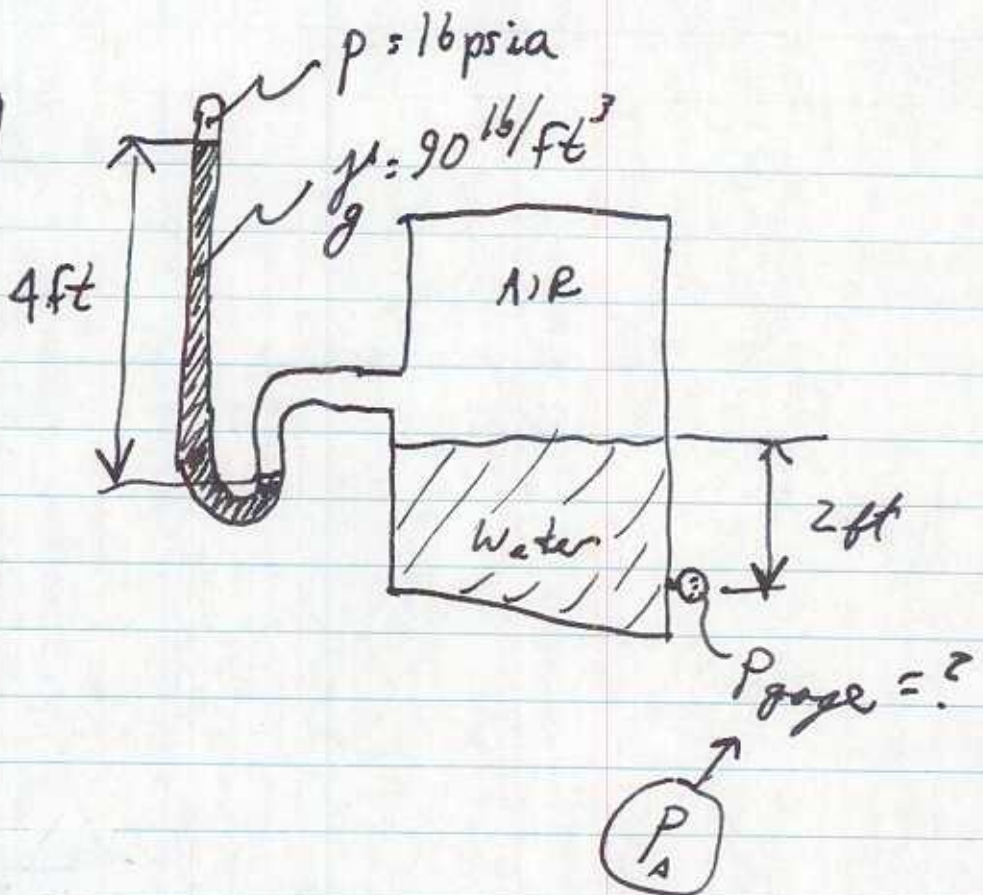 p = 16 psia
γ = 90 lb/ft³
g
4ft
AIR
Water
2ft
Pgage = ?
P_A